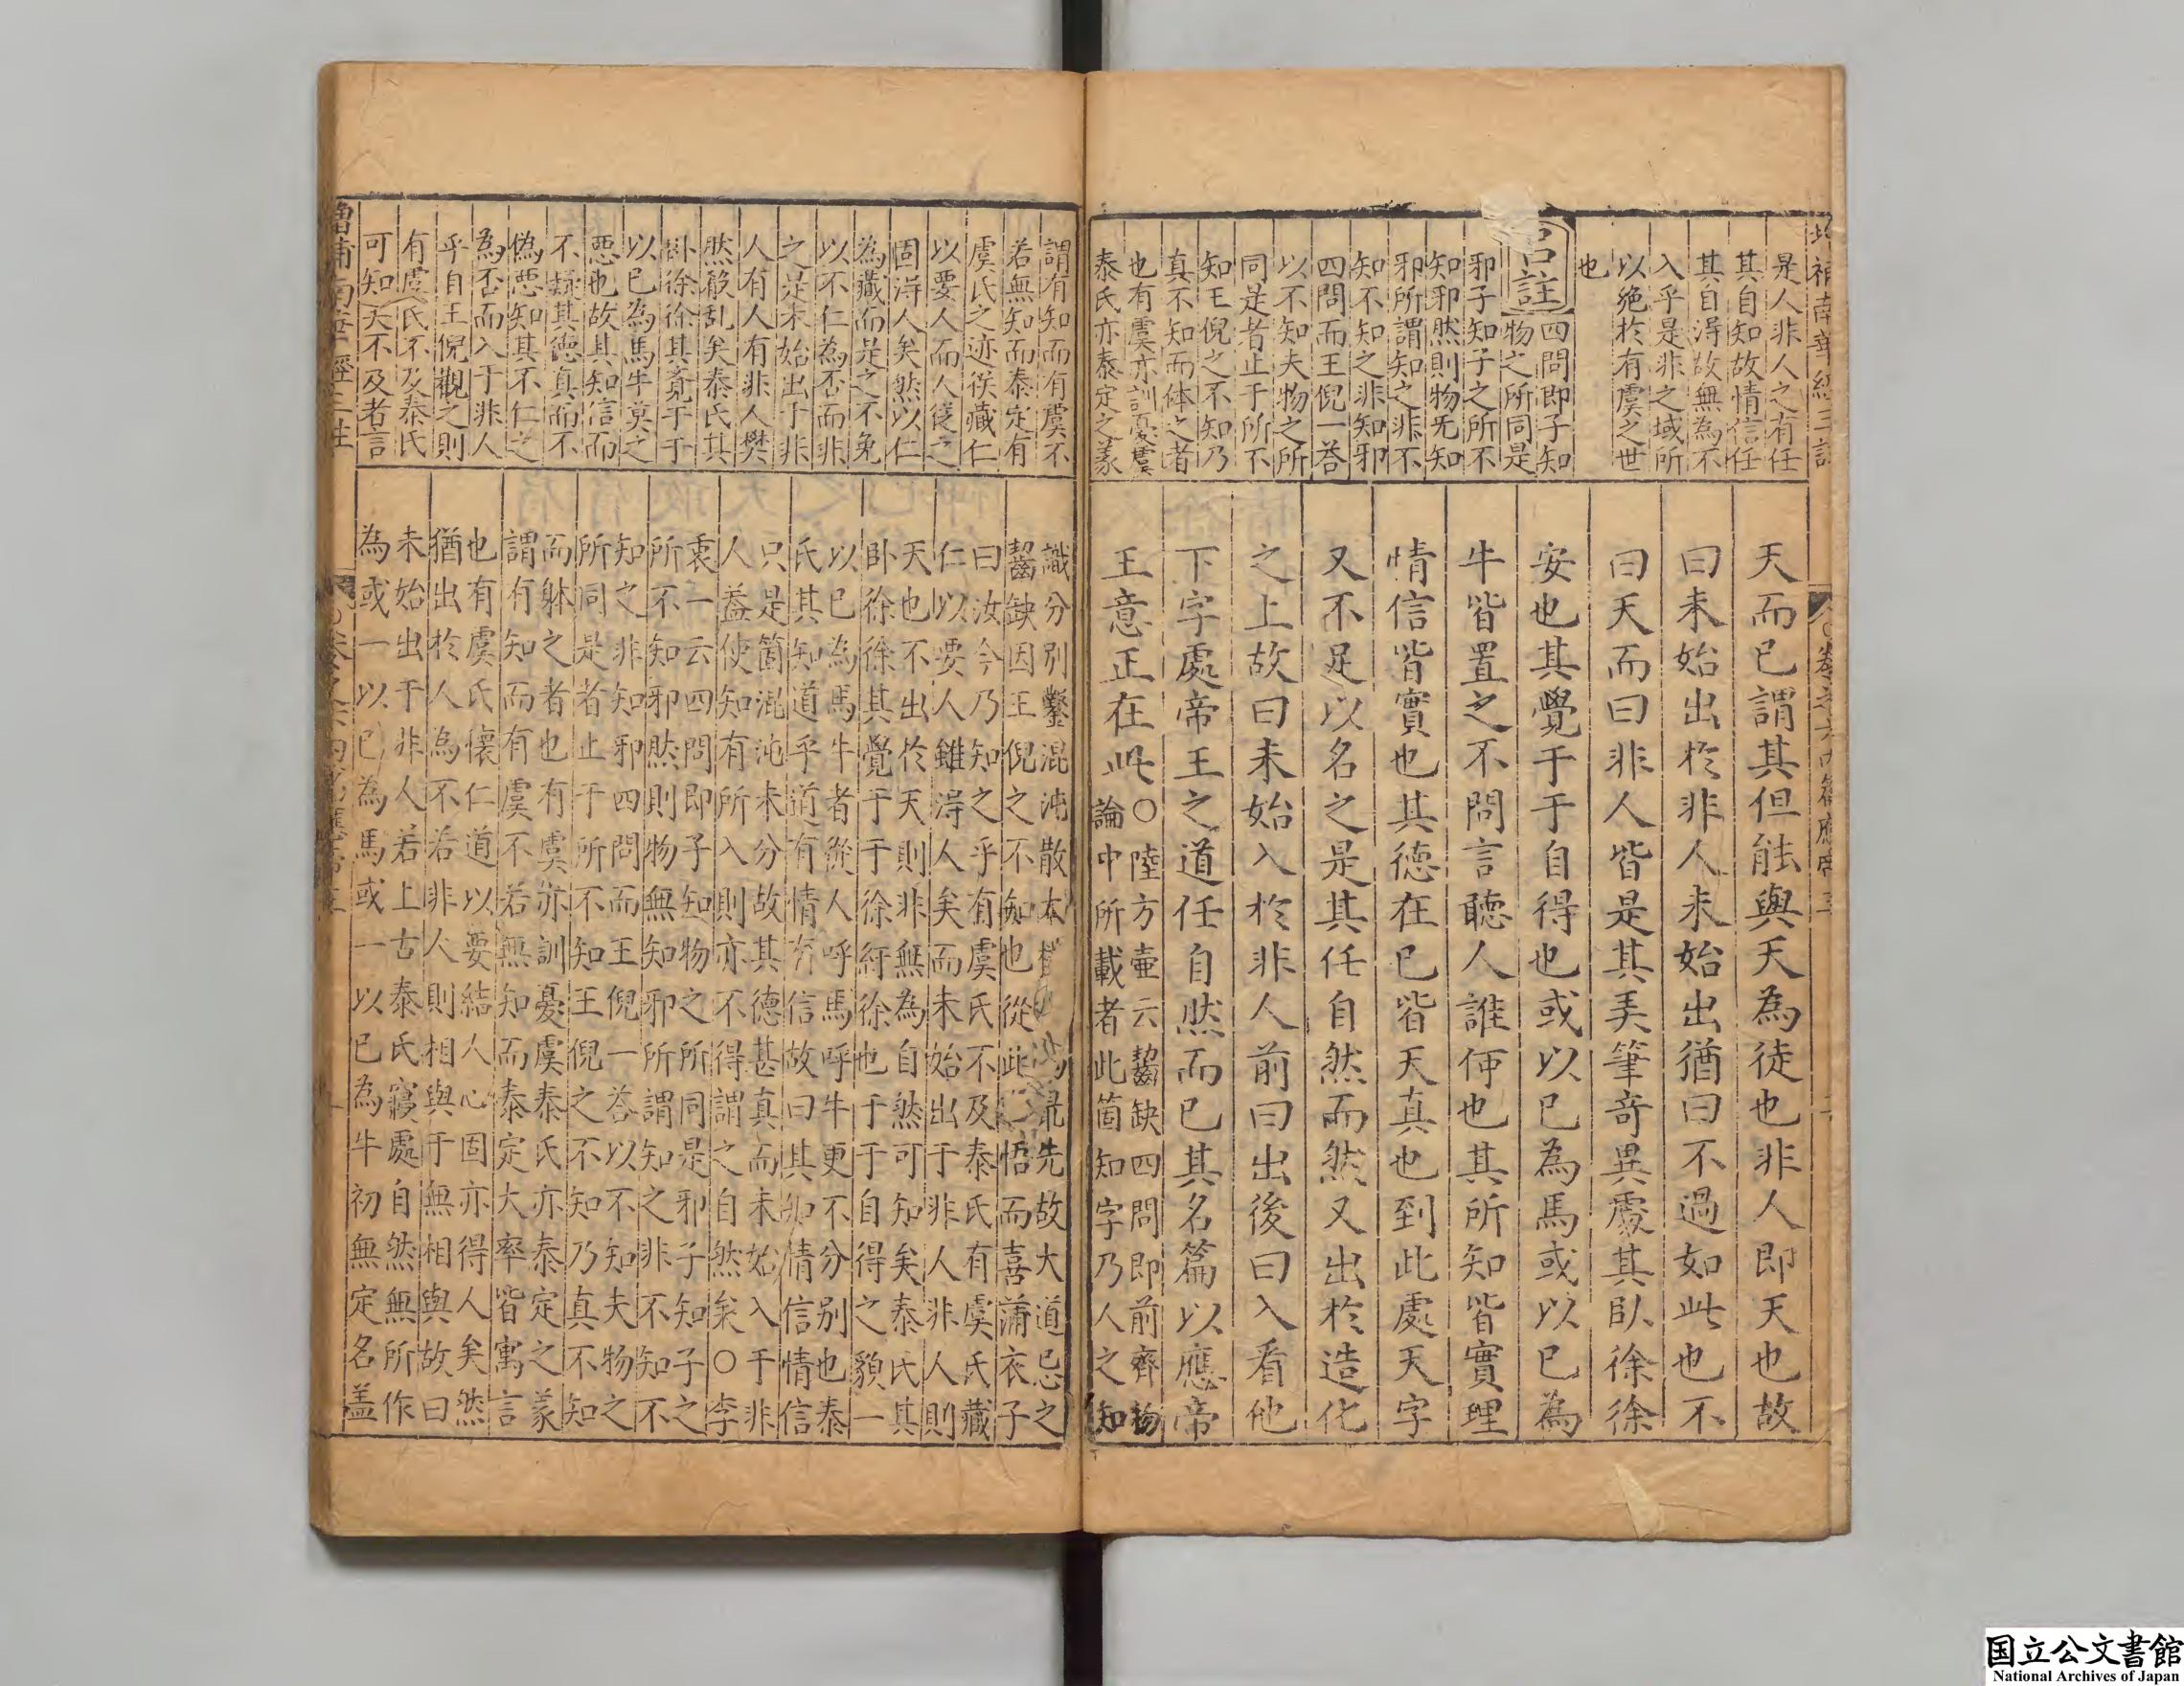 是人非人之有任
其自知故情信任
其自淂故無為不
入乎是非之域所
以絶於有虞之世
也
註
四問即子知
物之所同是
邪子知子之所不
知邪然則物旡知
邪所謂知之非不
知不知之非知邪
四問而王倪一荅
以不知夫物之所
同是者止于所不
知王倪之不知乃
真不知而体之者
也有虞亦訓憂虞
泰氏亦泰定之義
天而已謂其但能與天為徒也非人即天也故
曰未始出於非人未始出猶曰不過如此也不
曰天而曰非人皆是其美筆奇異處其卧徐徐
安也其覺于于自得也或以已為馬或以已為
牛皆置之不問言聽人誰何也其所知皆實理
情信皆實也其德在已皆天真也到此處天字
又不足以名之是其任自然而然又出於造化
之上故曰未始入於非人前曰出後曰入看他
下字處帝王之道任自然而已其名篇以應帝
王意正在此○陸方壺云齧缺四問即前齊物
論中所載者此箇知字乃人之知
謂有知而有虞不
若無知而泰定有
虞氏之迹後藏仁
以要人而人從之
固淂人矣然以仁
為藏而是之不免
以不仁為否而非
之是未始出于非
人有人有非人樊
然殽乱矣泰氏其
卧徐徐其覔于于
以已為馬牛莫之
惡也故其知信而
不疑其德真而不
偽惡知其不仁之
為否而入于非人
乎自王倪觀之則
有虞氏不及泰氏
可知天不及者言
識分别鑿混沌散本
最先故大道忌之
齧缺因王倪之不知也從此悟而喜蒲衣子
曰汝今乃知之乎有虞氏不及泰氏有虞氏藏
仁以要人雖淂人矣而未始出于非人非人則
天也不出於天則非無為自然可知矣泰氏其
卧徐徐其覺于于徐紆徐也于于自得之貌一
以已為馬牛者從人呼馬呼牛更不分别也泰
氏其知道乎道有情有信故曰其知情信情信
只是箇混沌未分故其德甚真而未始入于非
人葢使知有所入則亦不得謂之自然矣○李
衷一云四問即子知物之所同是邪子知子之
所不知邪然則物無知邪所謂知之非不知不
知之非知邪四問而王倪一荅以不知夫物之
所同是者止于所不知王倪之不知乃真不知
而躰之者也有虞亦訓憂虞泰氏亦泰定之義
謂有知而有虞不若無知而泰定大率皆寓言
也有虞氏懷仁道以要結人心固亦得人矣然
猶出於人為不若非人則相與于無相與故曰
未始出于非人若上古泰氏寢處自然無所作
為或一以已為馬或一以已為牛初無定名盖
国立公文書館
National Archives of Japan